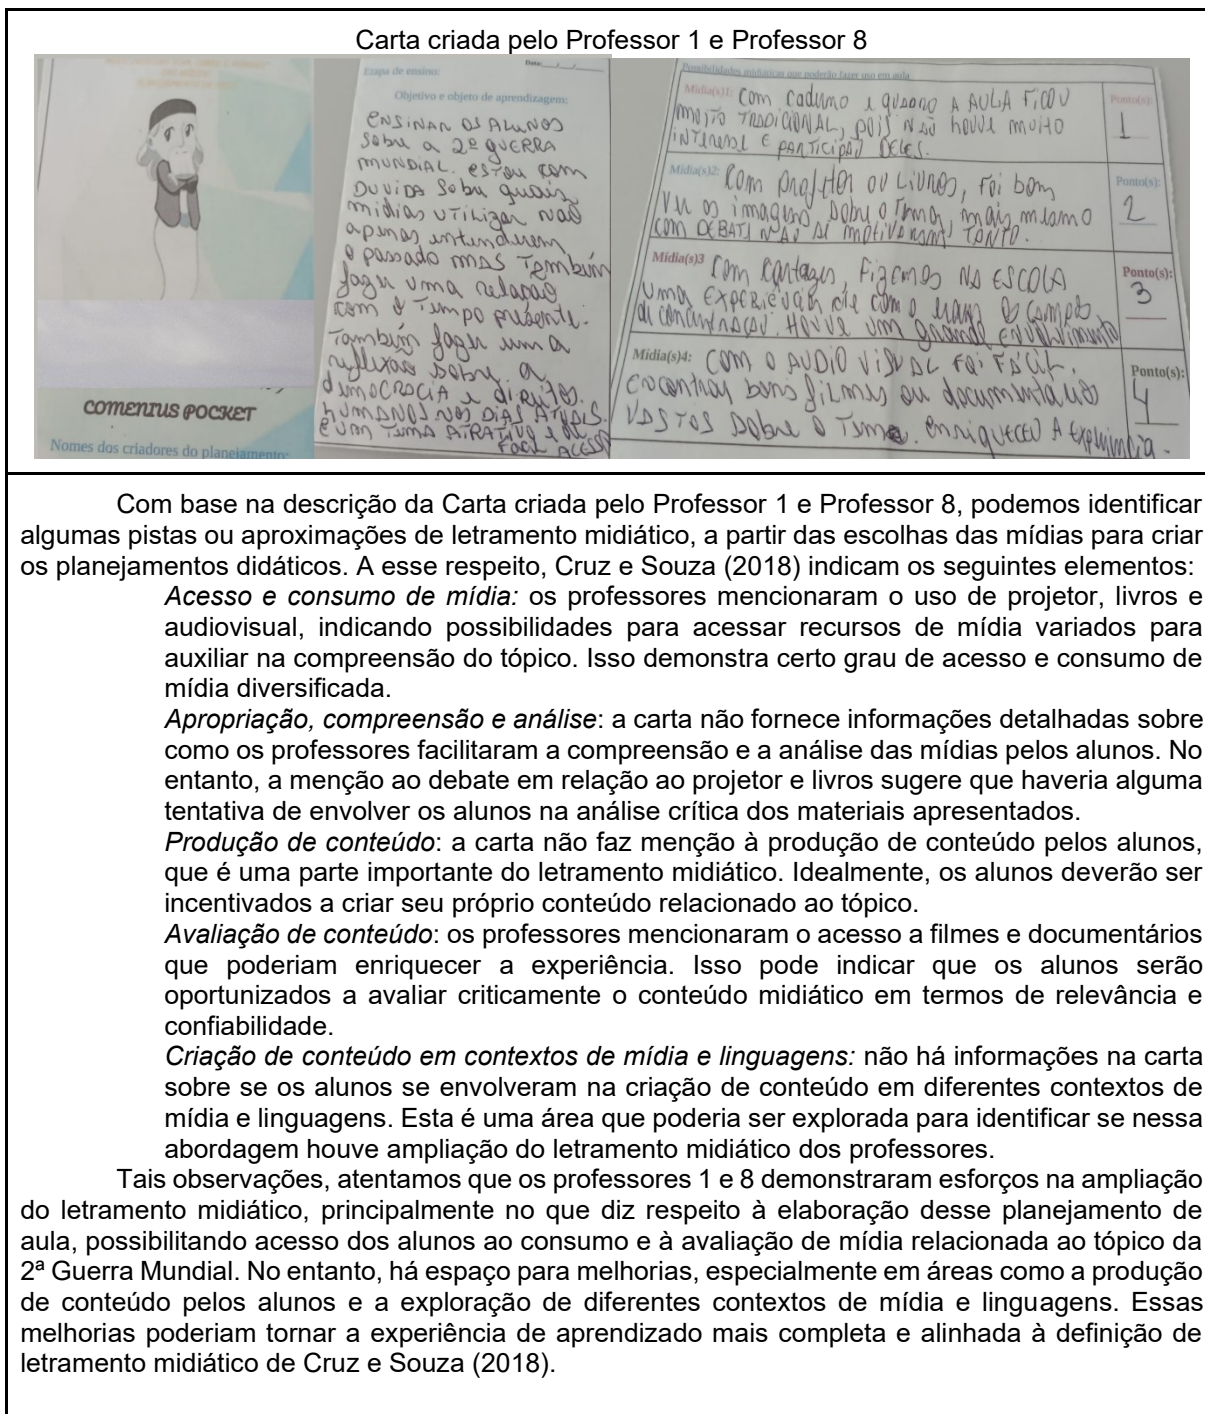 Carta criada pelo Professor 1 e Professor 8
COMENIUS POCKET
Nomes dos criadores do planejamento:
Data:__/__/__
Etapa de ensino:
Objetivo e objeto de aprendizagem:
ENSINAR OS ALUNOS
sobre a 2ª GUERRA
MUNDIAL. ESTOU COM
DUVIDA sobre quais
mídias UTILIZAR NÃO
apenas entenderem
o passado MAS Também
fazer uma relação
com o Tempo presente.
Também fazer uma
reflexão sobre a
DEMOCRACIA e direitos
HUMANOS NOS DIAS ATUAIS.
É UM TEMA ATRATIVO e de
FÁCIL ACESSO
Possibilidades midiáticas que poderão fazer uso em aula
Mídia(s)1: Com caderno e quadro A AULA FICOU
MUITO TRADICIONAL, pois NÃO houve muito
INTERESSE E PARTICIPAÇÃO DELES.
Ponto(s):
1
Mídia(s)2: Com projetor ou LIVROS, FOI bom
Ver as imagens sobre o Tema, mais mesmo
com DEBATE NÃO se motivaram TANTO.
Ponto(s):
2
Mídia(s)3 Com cartazes, Fizemos NA ESCOLA
uma EXPERIÊNCIA de como eram os campos
de concentração. HOUVE um grande envolvimento
Ponto(s):
3
Mídia(s)4: COM O AUDIO VISUAL FOI FÁCIL,
encontrar bons filmes ou documentários
VASTOS sobre o Tema. enriqueceu A experiência.
Ponto(s):
4
Com base na descrição da Carta criada pelo Professor 1 e Professor 8, podemos identificar
algumas pistas ou aproximações de letramento midiático, a partir das escolhas das mídias para criar
os planejamentos didáticos. A esse respeito, Cruz e Souza (2018) indicam os seguintes elementos:
Acesso e consumo de mídia: os professores mencionaram o uso de projetor, livros e
audiovisual, indicando possibilidades para acessar recursos de mídia variados para
auxiliar na compreensão do tópico. Isso demonstra certo grau de acesso e consumo de
mídia diversificada.
Apropriação, compreensão e análise: a carta não fornece informações detalhadas sobre
como os professores facilitaram a compreensão e a análise das mídias pelos alunos. No
entanto, a menção ao debate em relação ao projetor e livros sugere que haveria alguma
tentativa de envolver os alunos na análise crítica dos materiais apresentados.
Produção de conteúdo: a carta não faz menção à produção de conteúdo pelos alunos,
que é uma parte importante do letramento midiático. Idealmente, os alunos deverão ser
incentivados a criar seu próprio conteúdo relacionado ao tópico.
Avaliação de conteúdo: os professores mencionaram o acesso a filmes e documentários
que poderiam enriquecer a experiência. Isso pode indicar que os alunos serão
oportunizados a avaliar criticamente o conteúdo midiático em termos de relevância e
confiabilidade.
Criação de conteúdo em contextos de mídia e linguagens: não há informações na carta
sobre se os alunos se envolveram na criação de conteúdo em diferentes contextos de
mídia e linguagens. Esta é uma área que poderia ser explorada para identificar se nessa
abordagem houve ampliação do letramento midiático dos professores.
Tais observações, atentamos que os professores 1 e 8 demonstraram esforços na ampliação
do letramento midiático, principalmente no que diz respeito à elaboração desse planejamento de
aula, possibilitando acesso dos alunos ao consumo e à avaliação de mídia relacionada ao tópico da
2ª Guerra Mundial. No entanto, há espaço para melhorias, especialmente em áreas como a produção
de conteúdo pelos alunos e a exploração de diferentes contextos de mídia e linguagens. Essas
melhorias poderiam tornar a experiência de aprendizado mais completa e alinhada à definição de
letramento midiático de Cruz e Souza (2018).